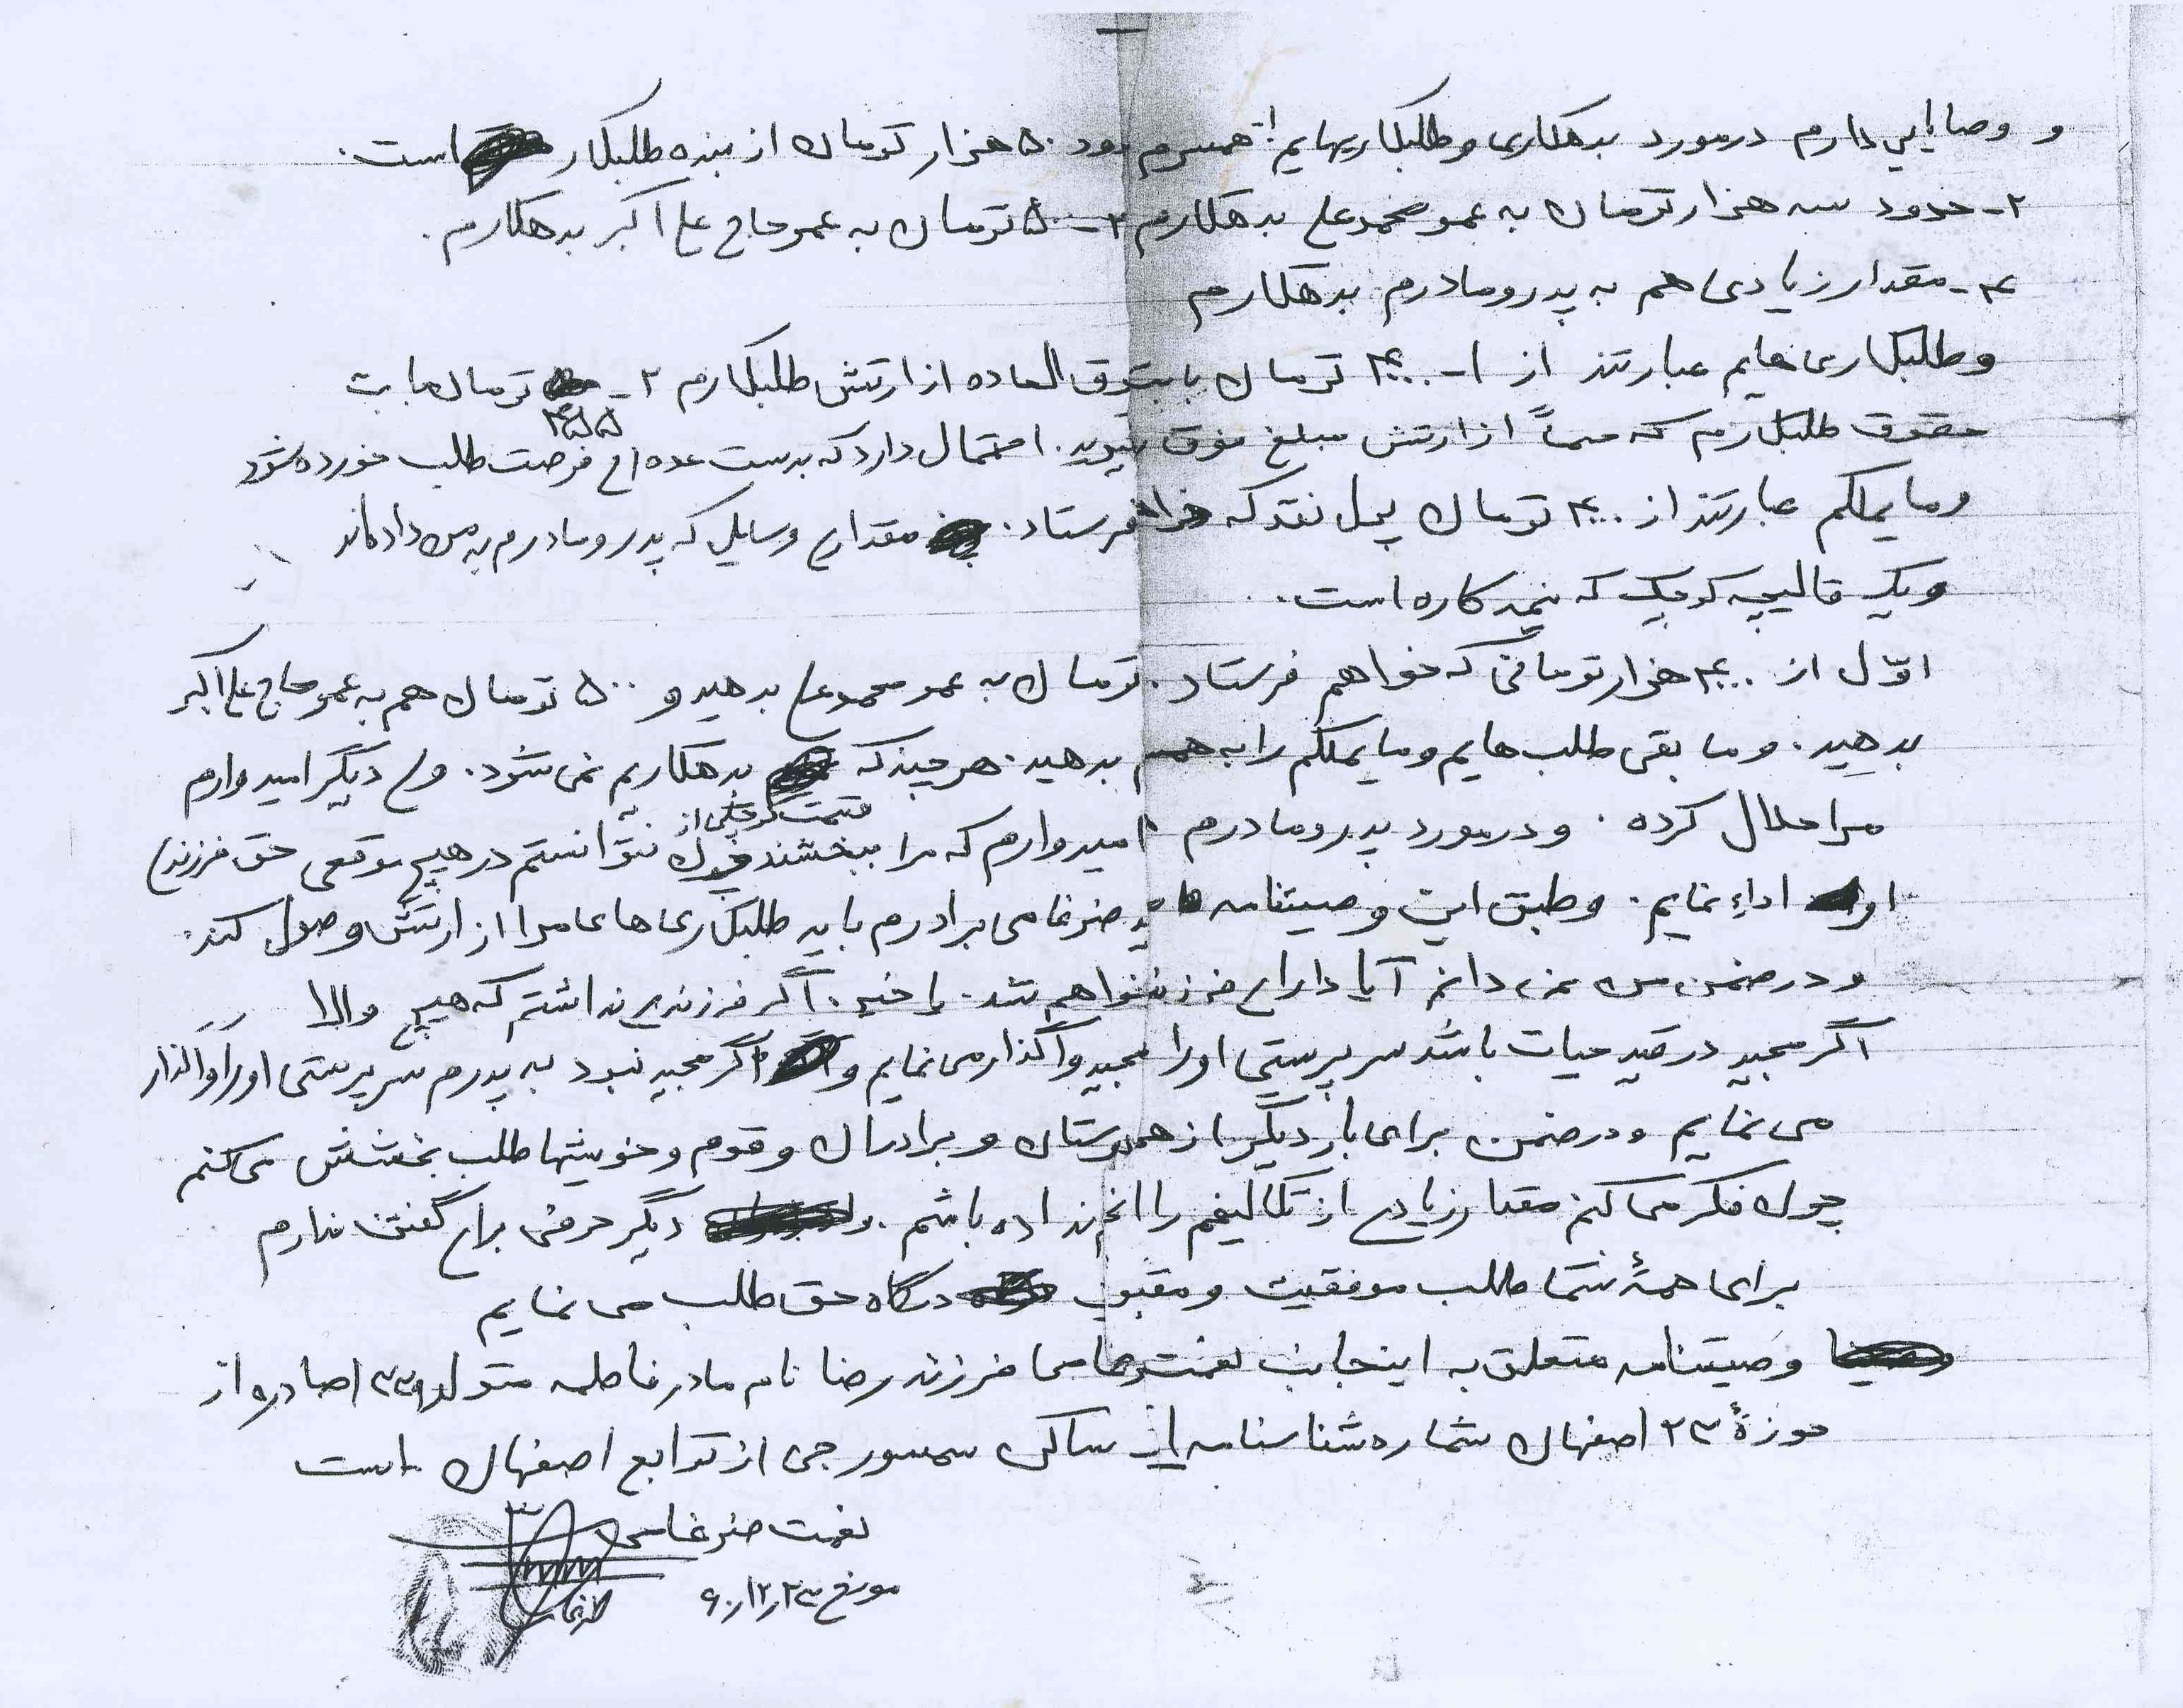 و وصایایی دارم در مورد بدهکاری و طلبکاریهایم ۱- همسرم حدود ۵۰ هزار تومان از بنده طلبکار است.
۲- حدود سه هزار تومان به عمو محمود علی بدهکارم ۳- ۵۰۰ تومان به عمو حاج علی اکبر بدهکارم.
۴- مقدار زیادی هم به پدر و مادرم بدهکارم
و طلبکاری هایم عبارتند از ۱- ۴۰۰۰ تومان بابت فوق العاده از ارتش طلبکارم ۲- تومان بابت
۴۵۵۵
حقوق طلبکارم که حتماً از ارتش مبلغ فوق بگیرید. احتمال دارد که بدست عده ای فرصت طلب خورده شود
و مایملکم عبارتند از ۴۰۰۰ تومان پول نقد که خواهم فرستاد. مقداری وسایلی که پدر و مادرم به من داده اند
و یک قالیچه کوچک که نیمه کاره است.
اوّل از ۴۰۰۰ هزار تومانی که خواهم فرستاد. تومان به عمو محمود علی بدهید و ۵۰۰ تومان هم به عمو حاج علی اکبر
بدهید. و ما بقی طلب هایم و مایملکم را به همسرم بدهید. هر چند که بدهکاریم نمی شود. ولی دیگر امیدوارم
مرا حلال کرده. و در مورد پدر و مادرم امیدوارم که مرا ببخشند چون نتوانستم در هیچ موقعی حق فرزندی
قسمت کوچکی از
اداء نمایم. و طبق این وصیتنامه ضرغامی برادرم باید طلبکاری های مرا از ارتش وصول کند.
و در ضمن من نمی دانم آیا دارای فرزند خواهم شد. یا خیر. اگر فرزندی نداشتم که هیچ والا
اگر مجید در قید حیات باشد سرپرستی او را مجید واگذار می نمایم و اگر مجید نبود به پدرم سرپرستی او را واگذار
می نمایم و در ضمن برای بار دیگر از همه دوستان و برادران و قوم و خویشها طلب بخشش می کنم
چون فکر می کنم مقدار زیادی از تکالیفم را انجام نداده باشم. دیگر حرفی برای گفتن ندارم
برای همهٔ شما طلب موفقیت و مقبول درگاه حق طلب می نمایم
وصیتنامه متعلق به اینجانب نعمت ضرغامی فرزند رضا نام مادر فاطمه متولد ۱۳۳۹ صادره از
حوزهٔ ۲۳ اصفهان شماره شناسنامه ساکن سمسور جی از توابع اصفهان است
نعمت ضرغامی
مورخ ۶۰/۱۲/۲۳